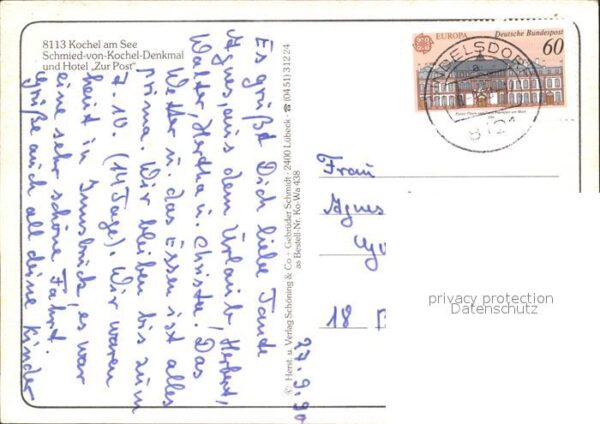 8113 Kochel am See
Schmied-von-Kochel-Denkmal
und Hotel „Zur Post"
Es grüßt Dich liebe Tante
Agnes, aus dem Urlaub, Herbert,
Walter, Hertha u. Christa. Das
Wetter u. das Essen ist alles
prima. Wir bleiben bis zum
7. 10. (14 Tage). Wir waren
heut in Innsbruck, es war
eine sehr schöne Fahrt.
Grüße auch all deine Kinder
27.9.90
© Herst. u. Verlag Schöning & Co · Gebrüder Schmidt · 2400 Lübeck · ☎ (04 51) 3 12 24
as Bestell-Nr. Ko-Wa 438
EUROPA
Deutsche Bundespost
60
Frau
Agnes
18
privacy protection
Datenschutz